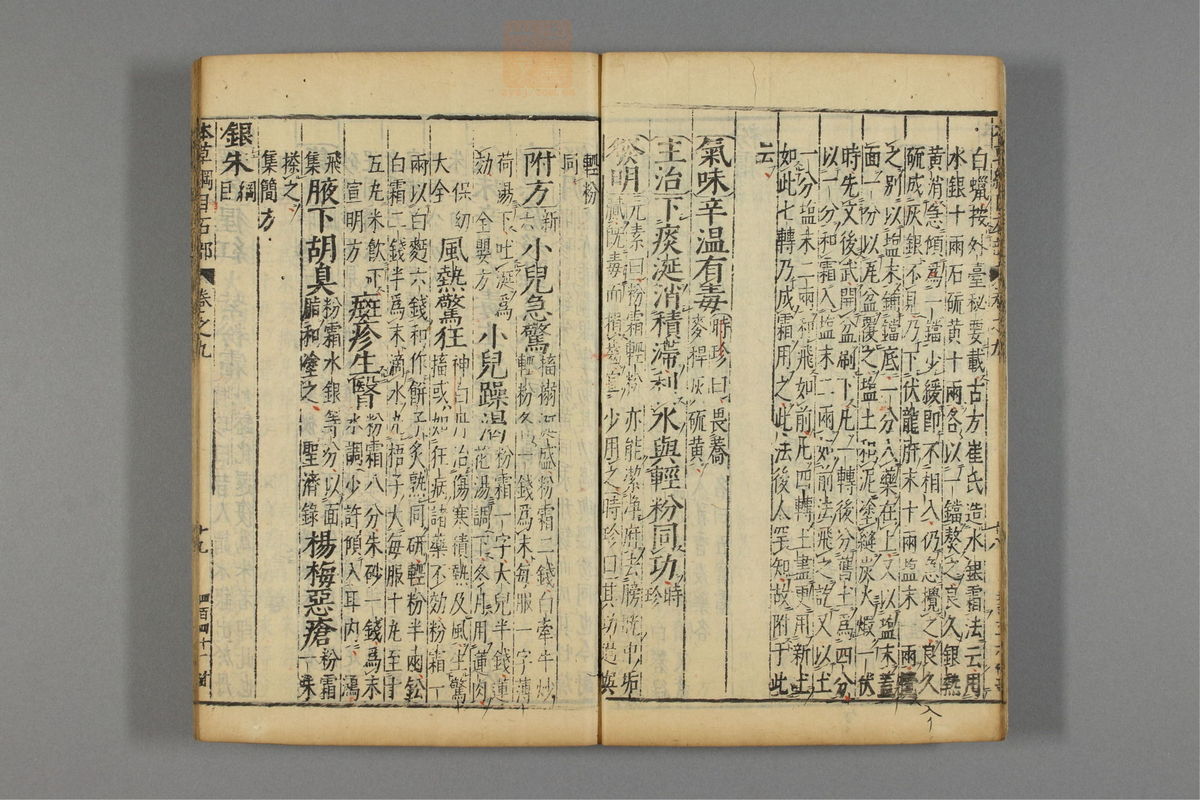 白蠟按外臺秘要載古方崔氏造水銀霜法云用
水銀十兩石硫黃十兩各以一鐺熬之良久銀熱
黃消急傾為一鐺少緩即不相入仍急攪之良久
硫成灰銀不見乃下伏龍肝末十兩鹽末一兩攪
之別以鹽末鋪鐺底一分入藥在上又以鹽末蓋
面一分以瓦盆覆之鹽土和泥塗縫炭火煅一伏
時先文後武開盆刷下凡一轉後分舊土為四分
以一分和霜入鹽末二兩如前法飛之訖又以土
一分鹽末二兩飛如前凡四轉土盡更用新土
如此七轉乃成霜用之此法後人罕知故附于此
云
氣味辛溫有毒時珍曰畏蕎麥稈灰硫黃
主治下痰涎消積滯利水與輕粉同功時珍
發明元素曰粉霜輕粉亦能潔淨府去膀胱中垢
膩既毒而損齒宜少用之時珍曰其功過與
輕粉
同
附方新六小兒急驚搐搦涎盛粉霜二錢白牽牛炒
輕粉各一錢為末每服一字薄
荷湯下吐涎為
効全嬰方小兒躁渴粉霜一字大兒半錢蓮
花湯調下冬月用蓮肉
保幼
大全風熱驚狂神白丹治傷寒積熱及風生驚
搐或如狂病諸藥不効粉霜一
兩以白麪六錢和作餅子炙熟同研輕粉半兩鈆
白霜二錢半為末滴水丸梧子大每服十丸至十
五丸米飲下
宣明方斑疹生瞖粉霜八分朱砂一錢為末
水調少許傾入耳內鴻
飛
集腋下胡臭粉霜水銀等分以面
脂和塗之聖濟錄楊梅惡瘡粉霜
一味
搽之
集簡方
銀朱綱目
本草綱目石部 卷之九 十九